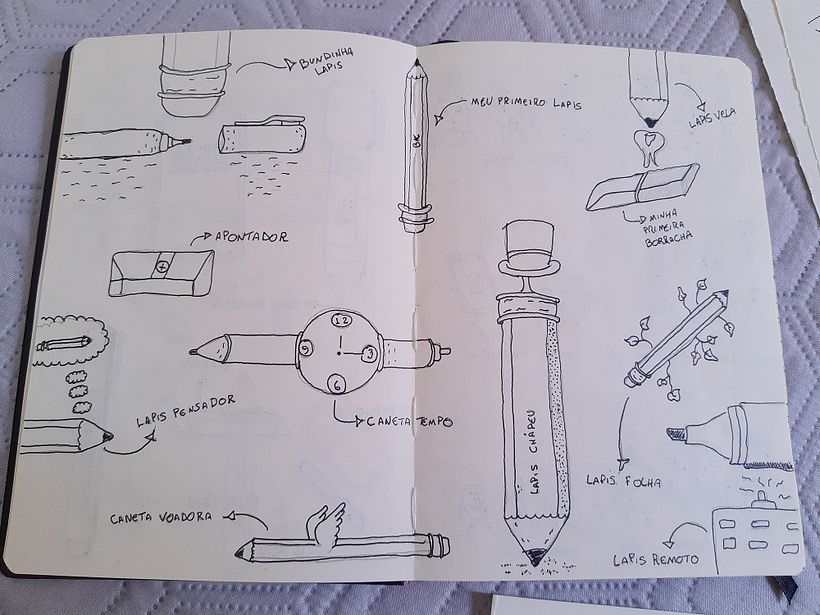 BUNDINHA
LAPIS
APONTADOR
12
3
6
9
CANETA TEMPO
LAPIS PENSADOR
CANETA VOADORA
MEU PRIMEIRO LAPIS
6K
LAPIS VELA
MINHA
PRIMEIRA
BORRACHA
LAPIS CHÁPEU
LAPIS FOLHA
LAPIS REMOTO